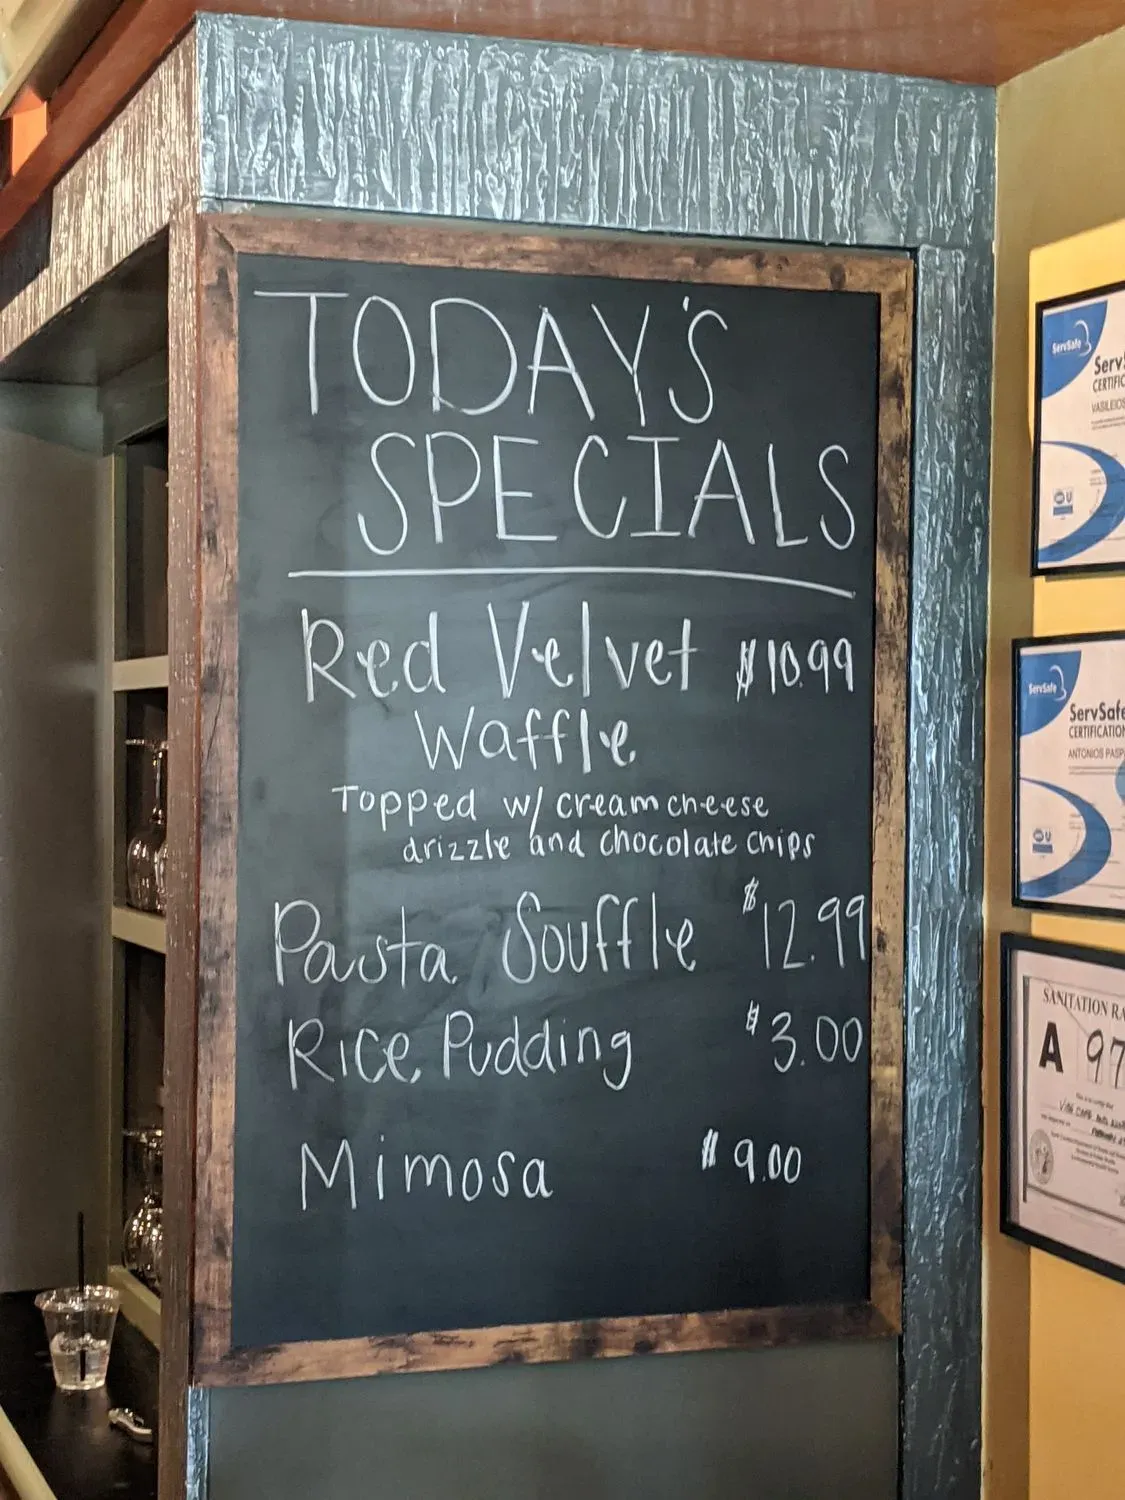 TODAY'S
SPECIALS
Red Velvet $10.99
Waffle
Topped w/ cream cheese
drizzle and chocolate chips
Pasta Souffle $12.99
Rice Pudding $3.00
Mimosa $9.00
ServSafe
CERTIFIC
VASILEIOS
ServSafe
ServSafe
CERTIFICATION
ANTONIOS
SANITATION RA
A 97